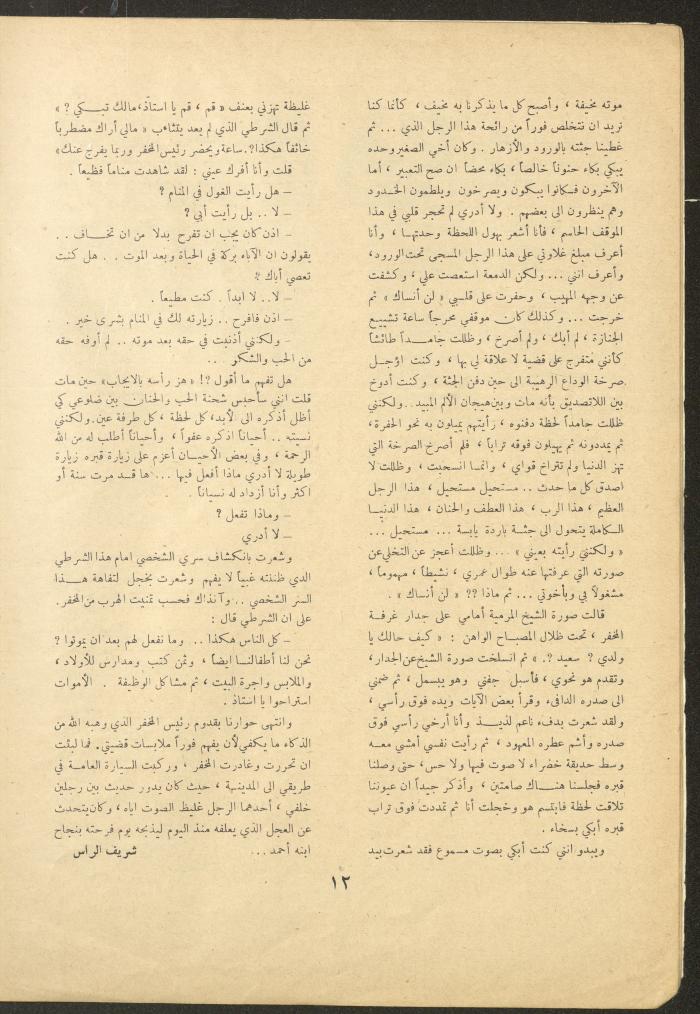 موته مخيفة ، وأصبح كل ما يذكرنا به مخيف ، كأنما كنا
نريد ان نتخلص فوراً من رائحة هذا الرجل الذي ... ثم
غطينا جثته بالورود والأزهار . وكان أخي الصغير وحده
يبكي بكاء حنوناً خالصاً ، بكاء محضاً ان صح التعبير ، أما
الآخرون فكانوا يبكون ويصرخون ويلطمون الخدود
وهم ينظرون الى بعضهم . ولا أدري لم تحجر قلبي في هذا
الموقف الحاسم ، فأنا أشعر بهول اللحظة وحدتها ، وأنا
أعرف مبلغ غلاوتي على هذا الرجل المسجى تحت الورود،
وأعرف انني ... ولكن الدمعة استعصت علي ، وكشفت
عن وجهه المهيب ، وحفرت على قلبي « لن أنساك » ثم
خرجت ... وكذلك كان موقفي محرجاً ساعة تشييع
الجنازة ، لم أبك ، ولم أصرخ ، وظللت جامداً طائشاً
كأنني متفرج على قضية لا علاقة لي بها ، وكنت اؤجل
صرخة الوداع الرهيبة الى حين دفن الجثة ، وكنت أدوخ
بين اللاتصديق بأنه مات وبين هيجان الألم المبيد . ولكنني
ظللت جامداً لحظة دفنوه ، رأيتهم يميلون به نحو الحفرة،
ثم يمددونه ثم يهيلون فوقه تراباً ، فلم أصرخ الصرخة التي
تهز الدنيا ولم تتراخ قواي ، وانما انسحبت ، وظللت لا
اصدق كل ما حدث .. مستحيل مستحيل ، هذا الرجل
العظيم ، هذا الرب ، هذا العطف والحنان ، هذا الدنيا
الكاملة يتحول الى جثة باردة يابسة ... مستحيل ...
« ولكنني رأيته بعيني » ... وظللت أعجز عن التخلي عن
صورته التي عرفتها عنه طوال عمري ، نشيطاً ، مهموماً ،
مشغولاً بي وبأخوتي ... ثم ماذا ؟؟ « لن أنساك » .
قالت صورة الشيخ المرمية أمامي على جدار غرفة
المخفر ، تحت ظلال المصباح الواهن : « كيف حالك يا
ولدي ؟ سعيد ؟. » ثم انسلخت صورة الشيخ عن الجدار،
وتقدم هو نحوي ، فأسبل جفني وهو يبسمل ، ثم ضمني
الى صدره الدافىء وقرأ بعض الآيات ويده فوق رأسي ،
ولقد شعرت بدفء ناعم لذيذ وأنا أرخي رأسي فوق
صدره وأشم عطره المعهود ، ثم رأيت نفسي أمشي معه
وسط حديقة خضراء لا صوت فيها ولا حس، حتى وصلنا
قبره فجلسنا هناك صامتين ، وأذكر جيداً ان عيوننا
تلاقت لحظة فابتسم هو وخجلت أنا ثم تمددت فوق تراب
قبره أبكي بسخاء .
ويبدو انني كنت أبكي بصوت مسموع فقد شعرت بيد
غليظة تهزني بعنف « قم ، قم يا استاذ ، مالك تبكي ؟ »
ثم قال الشرطي الذي لم يعد يتثاءب « مالي أراك مضطرباً
خائفاً هكذا؟. ساعة ويحضر رئيس المخفر وربما يفرج عنك»
قلت وأنا أفرك عيني : لقد شاهدت مناماً فظيعاً .
– هل رأيت الغول في المنام ؟
– لا .. بل رأيت أبي ?
– اذن كان يجب ان تفرح بدلا من ان تخاف . .
يقولون ان الآباء بركة في الحياة وبعد الموت . . هل كنت
تعصي أباك ؟
– لا.. لا ابداً . كنت مطيعاً .
– اذن فافرح .. زيارته لك في المنام بشرى خير .
– ولكنني أذنبت في حقه بعد موته .. لم أوفه حقه
من الحب والشكر ...
هل تفهم ما أقول ؟! « هز رأسه بالايجاب» حين مات
قلت انني سأحبس شحنة الحب والحنان بين ضلوعي كي
أظل أذكره الى الأبد، كل لحظة ، كل طرفة عين. ولكنني
نسيته .. أحياناً اذكره عفواً ، وأحياناً أطلب له من الله
الرحمة ، وفي بعض الأحيان أعزم على زيارة قبره زيارة
طويلة لا أدري ماذا أفعل فيها ... ها قد مرت سنة أو
اكثر وأنا أزداد له نسياناً .
– وماذا تفعل ؟
– لا أدري
وشعرت بانكشاف سري الشخصي امام هذا الشرطي
الذي ظننته غبياً لا يفهم وشعرت بخجل لتفاهة هذا
السر الشخصي .. وآنذاك فحسب تمنيت الهرب من المخفر.
على ان الشرطي قال :
– كل الناس هكذا .. وما نفعل لهم بعد ان يموتوا ؟
نحن لنا أطفالنا ايضاً ، وثمن كتب ومدارس للأولاد ،
والملابس واجرة البيت ، ثم مشاكل الوظيفة . الأموات
استراحوا يا استاذ .
وانتهى حوارنا بقدوم رئيس المخفر الذي وهبه الله من
الذكاء ما يكفي لأن يفهم فوراً ملابسات قضيتي. فما لبثت
ان تحررت وغادرت المخفر ، وركبت السيارة العامة في
طريقي الى المدينة ، حيث كان يدور حديث بين رجلين
خلفي ، أحدهما الرجل غليظ الصوت اياه ، وكان يتحدث
عن العجل الذي يعلفه منذ اليوم ليذبحه يوم فرحته بنجاح
ابنه أحمد ...
شريف الراس
١٢